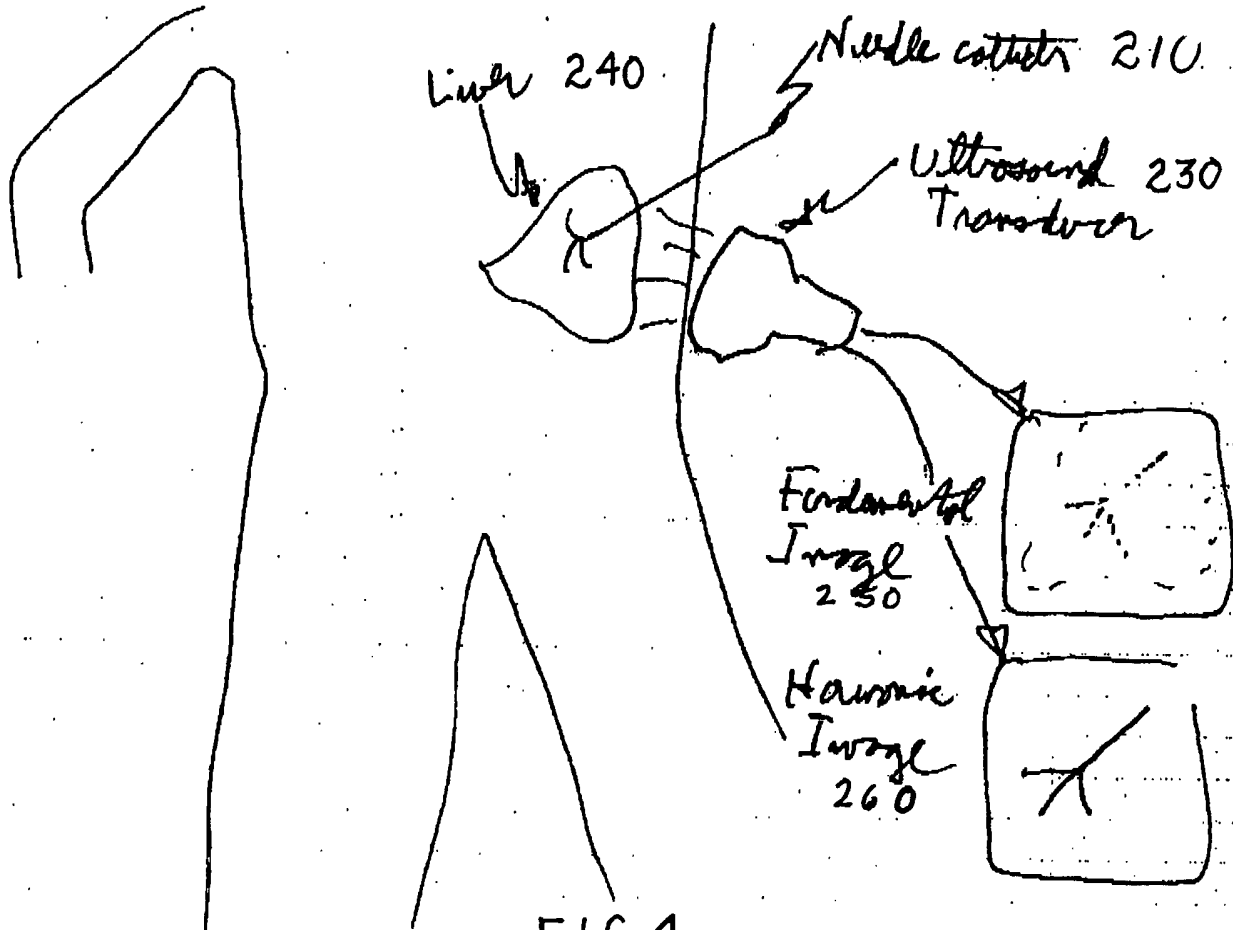 Liver 240
Needle catheter 210
Ultrasound 230
Transducer
Fundamental
Image
250
Harmonic
Image
260